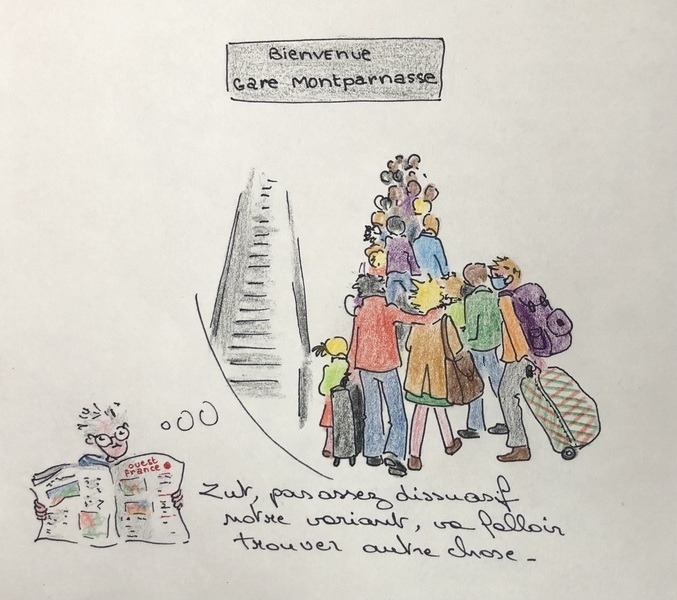 Bienvenue
Gare Montparnasse
ouest
France
Zut, pas assez dissuasif
notre variant, va falloir
trouver autre chose -